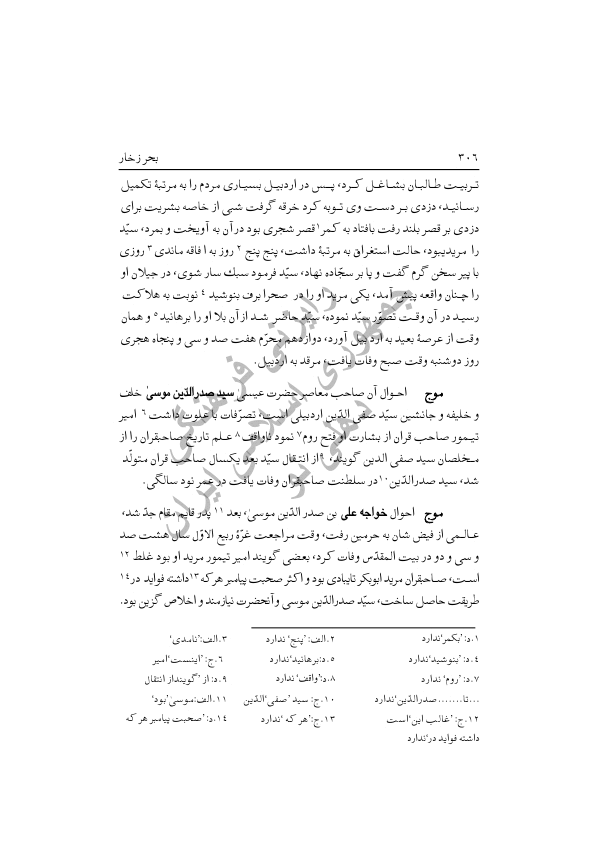 ۳۰۶ بحر زخار
تربیت طالبان بشاغل کرد، پس در اردبیل بسیاری مردم را به مرتبهٔ تکمیل
رسانید، دزدی بر دست وی توبه کرد خرقه گرفت شبی از خاصه بشریت برای
دزدی بر قصر بلند رفت بافتاد به کمر۱ قصر شجری بود در آن به آویخت و بمرد، سیّد
را مریدیبود، حالت استغراق به مرتبهٔ داشت، پنج پنج ۲ روز به افاقه ماندی ۳ روزی
با پیر سخن گرم گفت و پا بر سجّاده نهاد، سیّد فرمود سبك سار شوی، در جیلان او
را چنان واقعه پیش آمد، یکی مرید او را در صحرا برف بنوشید ۴ نوبت به هلاکت
رسید در آن وقت تصوّر سیّد نموده، سیّد حاضر شد از آن بلا او را برهانید ۵ و همان
وقت از عرصهٔ بعید به اردبیل آورد، دوازدهم محرّم هفت صد و سی و پنجاه هجری
روز دوشنبه وقت صبح وفات یافت، مرقد به اردبیل.
موج احوال آن صاحب معاصر حضرت عیسیٰ سید صدرالدّین موسیٰ خلف
و خلیفه و جانشین سیّد صفی الدّین اردبیلی است، تصرّفات با علوت داشت ۶ امیر
تیمور صاحب قران از بشارت او فتح روم۷ نمود ناواقف۸ علم تاریخ صاحبقران را از
مخلصان سید صفی الدین گویند، ۹از انتقال سیّد بعد یکسال صاحب قران متولّد
شد، سید صدرالدّین۱۰در سلطنت صاحبقران وفات یافت در عمر نود سالگی.
موج احوال خواجه علی بن صدر الدّین موسیٰ، بعد ۱۱ پدر قایم مقام جدّ شد،
عالمی از فیض شان به حرمین رفت، وقت مراجعت غرّهٔ ربیع الاوّل سال هشت صد
و سی و دو در بیت المقدّس وفات کرد، بعضی گویند امیر تیمور مرید او بود غلط ۱۲
است، صاحبقران مرید ابوبکر تایبادی بود و اکثر صحبت پیامبر هرکه۱۳داشته فواید در۱۴
طریقت حاصل ساخت، سیّد صدرالدّین موسی و آنحضرت نیازمند و اخلاص گزین بود.
۱.د: ’بکمر‘ندارد ۲.الف: ’پنج‘ ندارد ۳.الف:’نامدی‘
۴.د: ’بنوشید‘ندارد ۵.د:برهانید‘ندارد ۶.ج: ’اینست‘امیر
۷.د: ’روم‘ ندارد ۸.د:’واقف‘ ندارد ۹.د: از ’گویند‌از انتقال
...تا....... صدرالدّین‘ندارد ۱۰.ج: سید ’صفی‘الدّین ۱۱.الف:موسیٰ’بود‘
۱۲.ج: ’غالب این‘است ۱۳.ج:’هر که ‘ندارد ۱۴.د: ’صحبت پیامبر هر که
داشته فواید در‘ندارد
رایزنی فرهنگی
جمهوری اسلامی ایران
دهلی نو